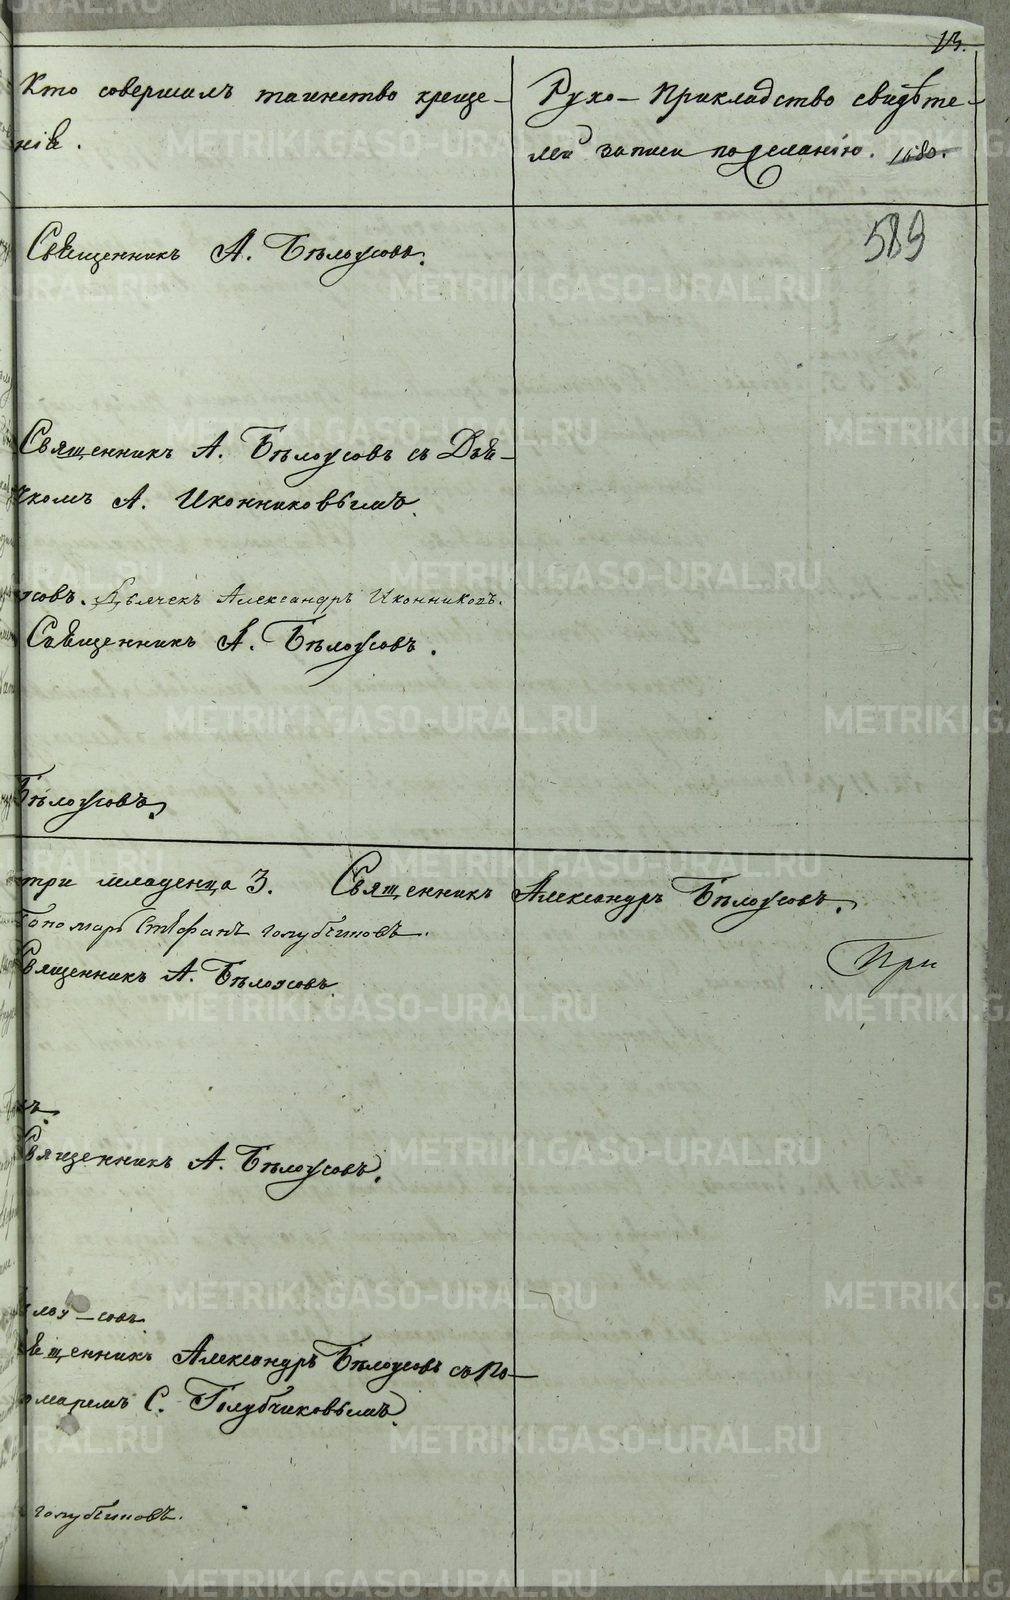 13.
Кто совершалъ таинство креще-
нія.
Руко-Прикладство свидѣте-
лей записи по желанію. 1580.
589
Священникъ А. Бѣлоусовъ.
Священникъ А. Бѣлоусовъ съ Дья-
чкомъ А. Иконниковымъ.
усовъ. Дьячекъ Александръ Иконниковъ.
Священникъ А. Бѣлоусовъ.
Бѣлоусовъ.
три младенца 3. Священникъ Александръ Бѣлоусовъ.
Пономарь Стефанъ Голубчиковъ.
При
Священникъ А. Бѣлоусовъ.
въ.
Священникъ А. Бѣлоусовъ.
лоу-совъ.
Священникъ Александръ Бѣлоусовъ съ По-
номаремъ С. Голубчиковымъ.
Голубчиковъ.